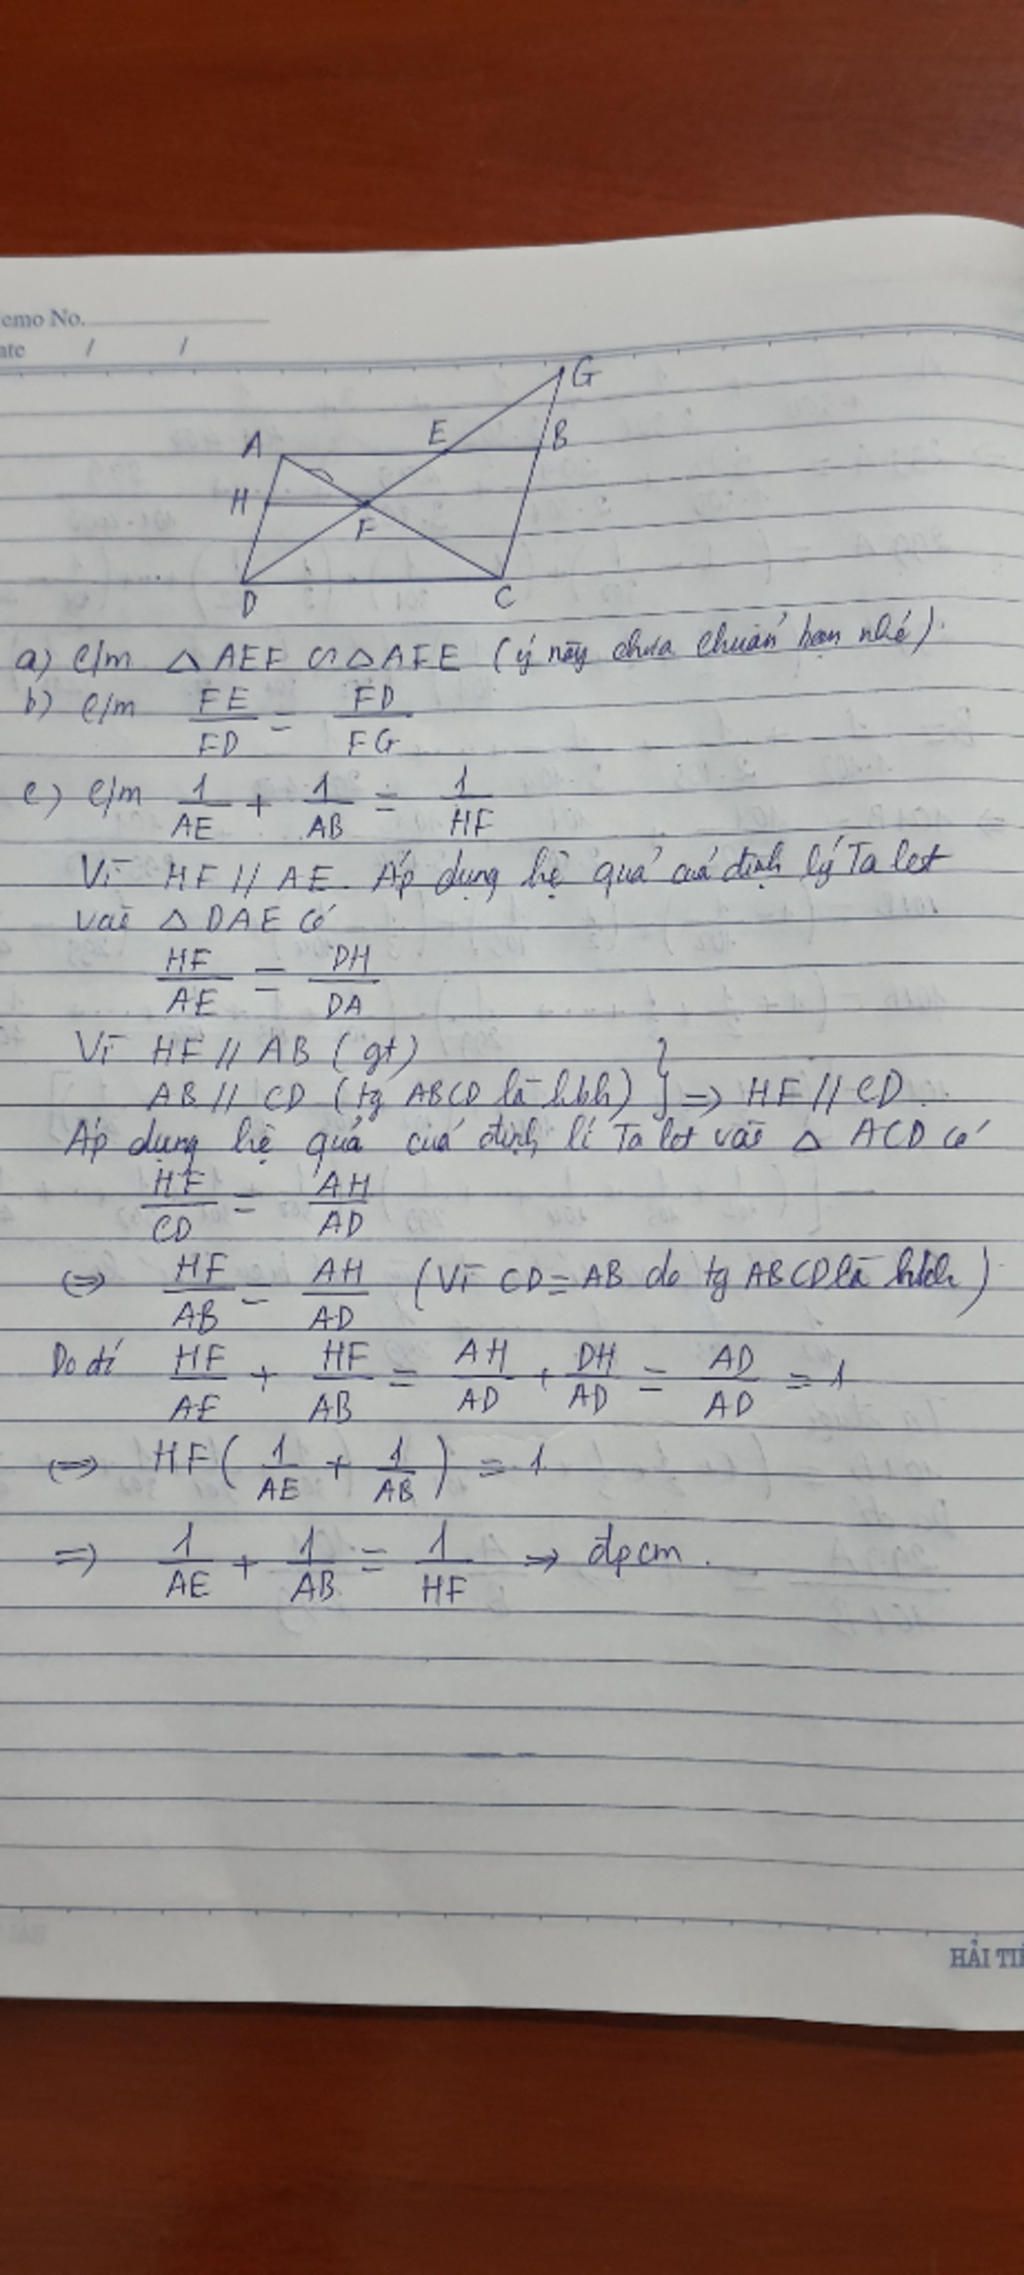 emo No.
ate / /
G
A E B
H F
D C
a) C/m △ AEF ∽ △ AFE (ý này chưa chuẩn bạn nhé).
b) C/m FE/FD = FD/FG
c) C/m 1/AE + 1/AB = 1/HF
Vì HF // AE. Áp dụng hệ quả của định lý Ta let
vào △ DAE có
HF/AE = DH/DA
Vì HF // AB (gt)
AB // CD (tg ABCD là hbh) } => HF // CD.
Áp dụng hệ quả của định lí Ta let vào △ ACD có
HF/CD = AH/AD
<=> HF/AB = AH/AD (Vì CD = AB do tg ABCD là hbh)
Do đó HF/AE + HF/AB = AH/AD + DH/AD = AD/AD = 1
<=> HF(1/AE + 1/AB) = 1
=> 1/AE + 1/AB = 1/HF => đpcm.
HẢI TI